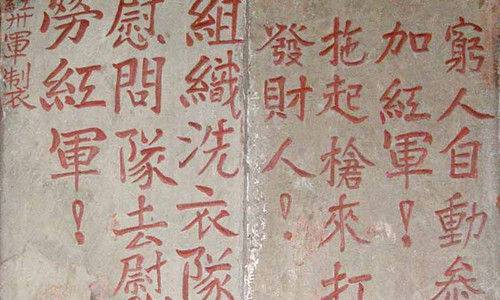 窮人自動參
加紅軍！
拖起槍來打
發財人！
組織洗衣隊
慰問隊去慰
勞紅軍！
軍製